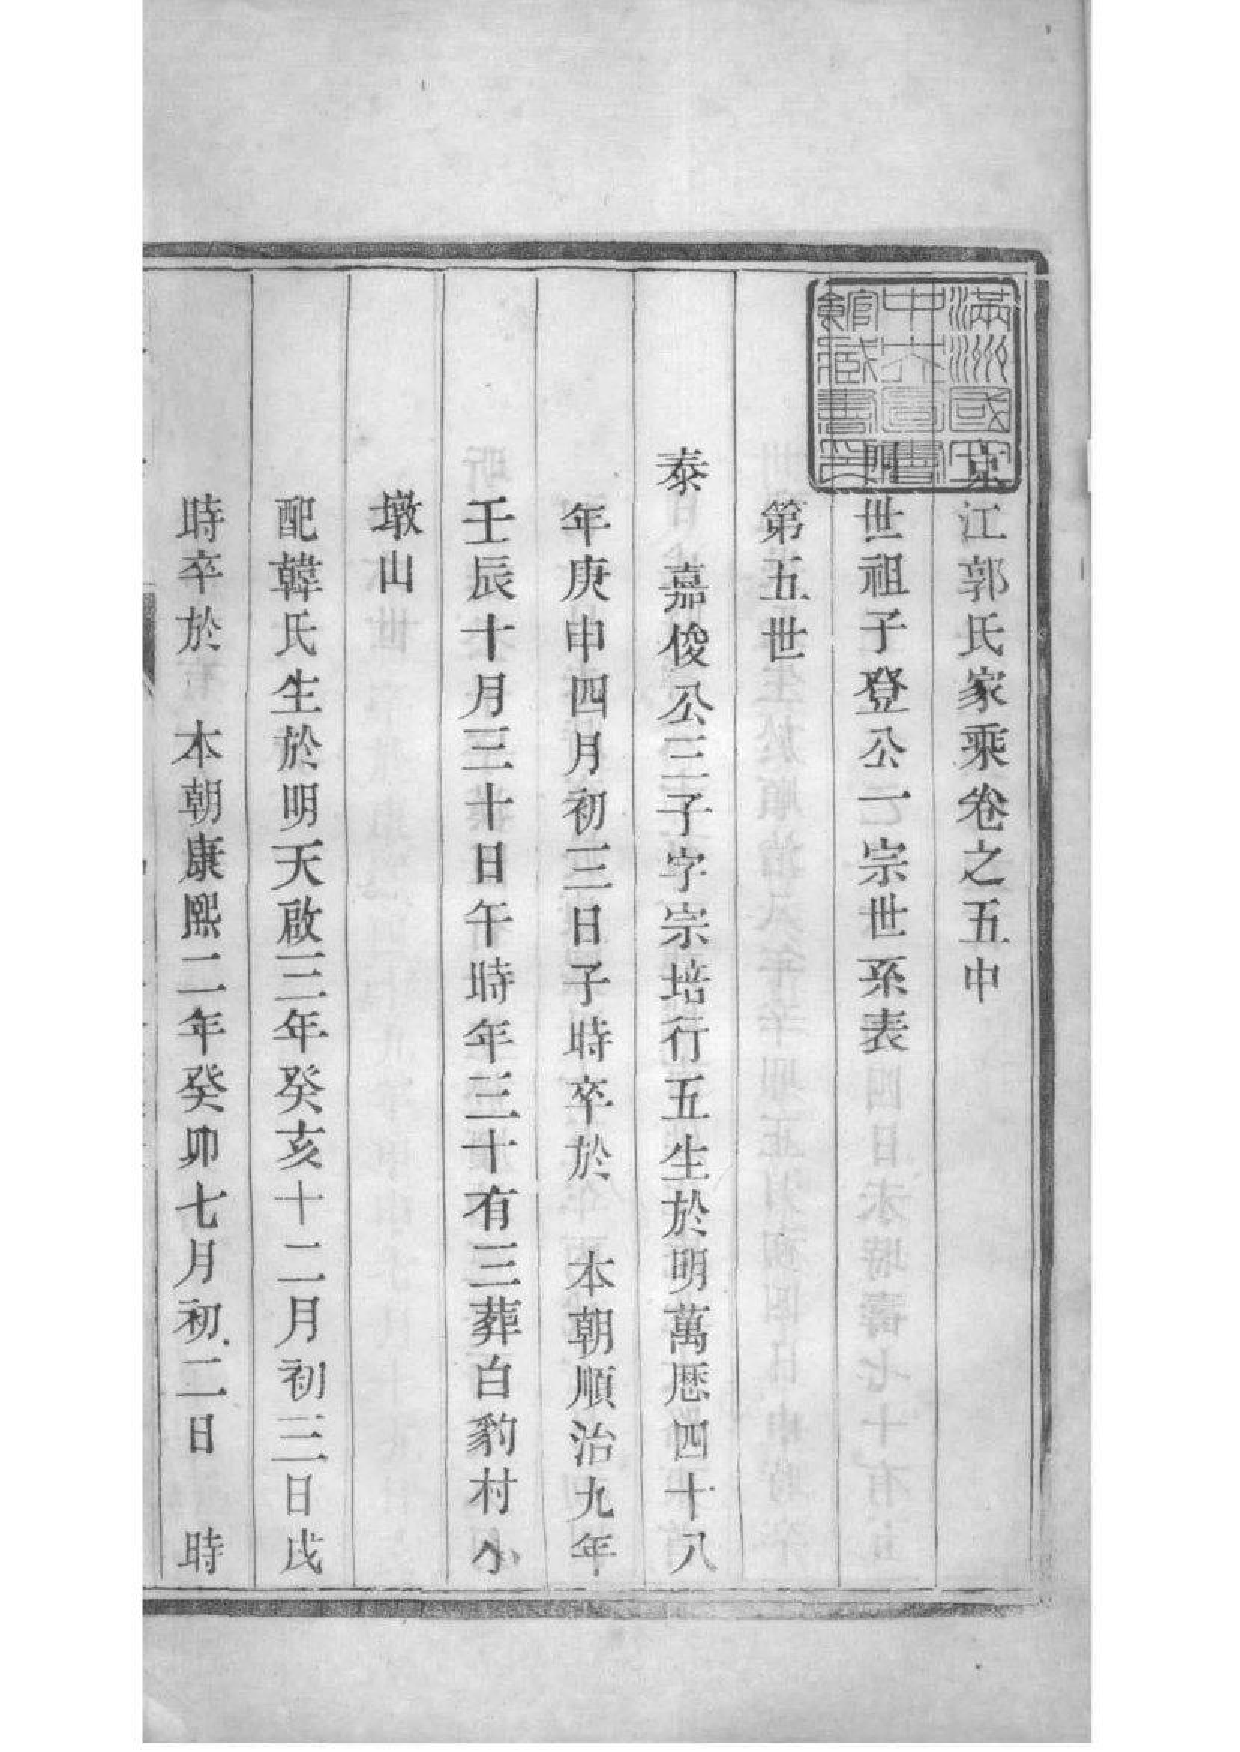 滿洲國
中央圖書
館藏書印
京江郭氏家乘卷之五中
四世祖子登公一宗世系表
第五世
泰 嘉俊公三子字宗培行五生於明萬歷四十八
年庚申四月初三日子時卒於 本朝順治九年
壬辰十月三十日午時年三十有三葬白豹村小
墩山
配韓氏生於明天啟三年癸亥十二月初三日戌
時卒於 本朝康熙二年癸卯七月初二日 時